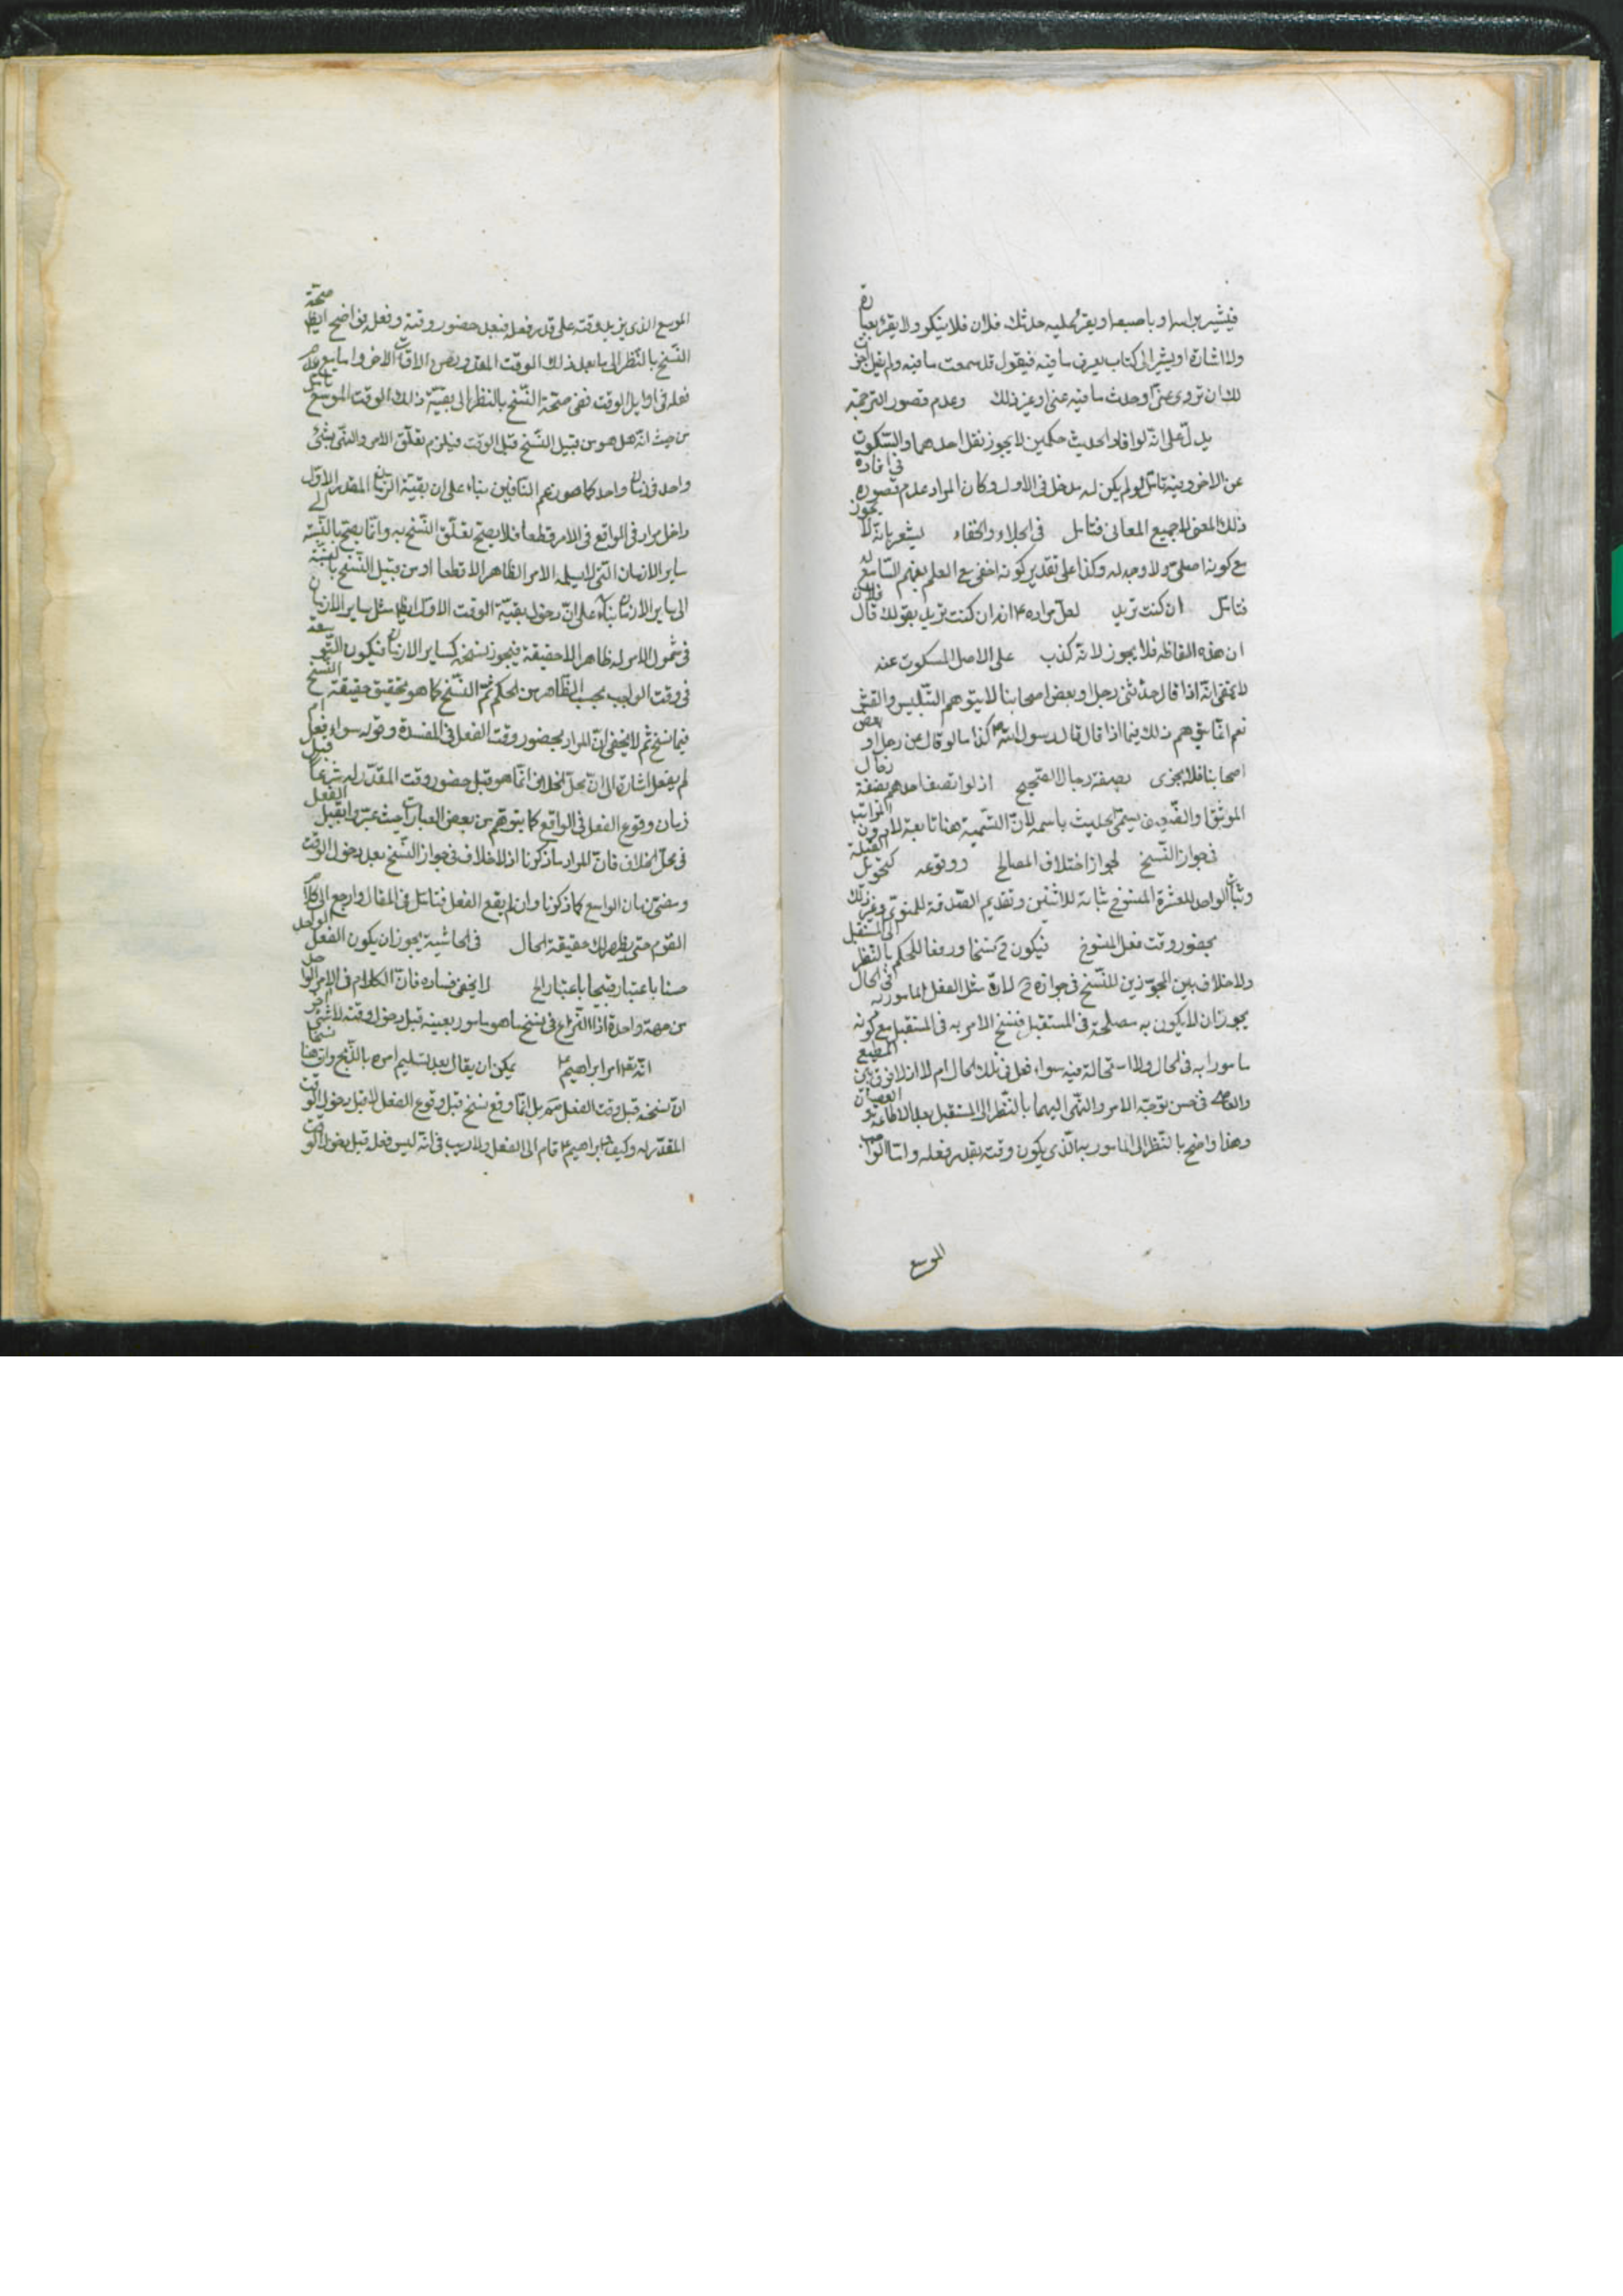 فيشير براسه او باصبعه او يقرء عليه حدثك فلان فلا ينكر ولا يقر بعبارة
ولا اشارة او يشير الى كتاب يعرف ما فيه فيقول قد سمعت ما فيه ولم يقل اجزت
لك ان تروى عنى او حدث ما فيه عنى او غير ذلك وعدم قصور الترجمة
يدل على انه لو افاد الحديث حكمين لا يجوز نقل احدهما والسكوت
عن الاخر وفيه تامل لو لم يكن له مدخل فى الاول وكان المراد عدم قصوره فى افادة
ذلك المعنى لا جميع المعانى فتامل فى الجلاء والخفاء يشعر بانه لا يجوز
مع كونه اجلى ولا وجه له وكذا على تقدير كونه اخفى مع العلم بفهم السامع له
فتامل ان كنت تريد لعل مراده انه ان كنت تريد بقولك قال فلان
ان هذه الفاظه فلا يجوز لانه كذب على الاصل المسكوت عنه
لا يخفى انه اذا قال حدثنى رجل او بعض اصحابنا لا يتوهم التلبيس والغش
نعم انما يتوهم ذلك فيما اذا قال قال رسول الله ص كذا ما لو قال عن رجل او بعض
اصحابنا فلا يجزى بصفة رجال الصحيح اذ لو اتصف احدهم بصفة رجال
الموثق او الضعيف يسمى الحديث باسمه لان التسمية هنا تابعة لادون المراتب
فى جواز النسخ لجواز اختلاف المصالح ووقوعه كتحويل القبلة
وثبات الواحد للعشرة المنسوخ بثباته للاثنين وتقديم الصدقة للنجوى وغير ذلك
بحضور وقت فعل المنسوخ فيكون ح نسخا ورفعا للحكم بالنظر الى المستقبل
ولا خلاف بين المجوزين للنسخ فى جوازه ح لان مثل الفعل المامور به فى الحال
يجوز ان لا يكون به مصلحة فى المستقبل فينسخ الامر به فى المستقبل مع كونه
مامورا به فى الحال ولا استحالة فيه سواء فعل فى تلك الحال ام لا اذ لا فرق بين المطيع
والعاصى فى حسن توجه الامر والنهى اليهما بالنظر الى المستقبل بعد الاطاعة والعصيان
وهذا واضح بالنظر الى المامور به الذى يكون وقته بقدر فعله واما الواجب
الموسع
الموسع الذى يزيد وقته على قدر فعله فبعد حضور وقته وفعله فواضح ايضا صحة
النسخ بالنظر الى ما بعد ذلك الوقت المقدر وبعض الاوقات الاخر واما مع عدم
فعله فى اوايل الوقت ففى صحة النسخ بالنظر الى بقية ذلك الوقت الموسع تامل
من حيث انه هل هو من قبيل النسخ قبل الوقت فيلزم تعلق الامر والنهى بشىء
واحد فى زمان واحد كما هو زعم النافين بناء على ان بقية الزمان المقدر الاول
داخل مراد فى الواقع فى الامر قطعا فلا يصح تعلق النسخ به وانما يصح بالنسبة الى
ساير الازمان التى لا يشمله الامر الظاهر الا قطعا او من قبيل النسخ بالنسبة
الى ساير الازمان بناء على ان دخول بقية الوقت الاول ايضا مثل ساير الازمان
فى شمول الامر له ظاهرا لا حقيقة فيجوز نسخه كساير الازمان فيكون التوسعة
فى وقت الواجب بحسب الظاهر من الحكم ثم النسخ كما هو تحقيق حقيقة النسخ
فيما نسخ ثم لا يخفى ان المراد بحضور وقت الفعل فى المفسدة وقوله سواء فعل ام
لم يفعل اشارة الى ان محل الخلاف انما هو قبل حضور وقت المقدر له شرعا قبل
زمان وقوع الفعل فى الواقع كما يتوهم من بعض العبارات حيث عبروا بقبل الفعل
فى محل الخلاف فان المراد ما ذكرنا اذ لا خلاف فى جواز النسخ بعد دخول الوقت
ومضى زمان الواسع كما ذكرنا وان لم يقع الفعل فتامل فى المقال وارجع الى كلام
القوم حتى يظهر لك حقيقة الحال فى الحاشية يجوز ان يكون الفعل الواحد
حسنا باعتبار قبيحا باعتبار الخ لا يخفى فساده فان الكلام فى الامر الواحد
من جهة واحدة اذ النزاع فى نسخ ما هو مامور بعينه قبل دخول وقته لا شىء اخر
انه تع امر ابراهيم ع يمكن ان يقال بعد تسليم امره بالذبح وان هنا نسخا
ان نسخه قبل وقت الفعل مم بل انما وقع نسخ قبل وقوع الفعل لا قبل دخول الوقت
المقدر له وكيف ابراهيم ع قام الى الفعل ولا ريب فى انه ليس فعل قبل دخول الوقت